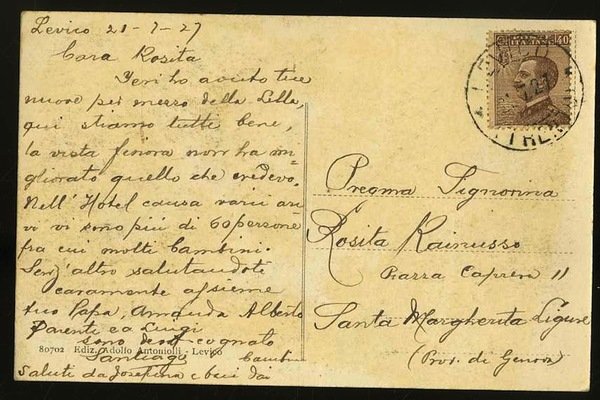 Levico 21-7-27
Cara Rosita
Jeri ho avuto tue
nuove per mezzo della Lilla,
qui stiamo tutti bene,
la vista finora non ha mi-
gliorato quello che credevo.
Nell' Hotel causa varii ari
vi vi sono più di 60 persone
fra cui molti bambini.
Senz' altro salutandoti
caramente assieme
tuo Papa, Amanda Alberto
Parente ed Luigi
sono cognato
Santiago
80702 Ediz. Adolfo Antoniolli - Levico
bambini
Saluti da Josefina e baci dai
40
LEVICO
7.27
(TRENTO)
Pregma Signorina
Rosita Rainusso
Piazza Caprera 11
Santa Margherita Ligure
(Prov. di Genova)